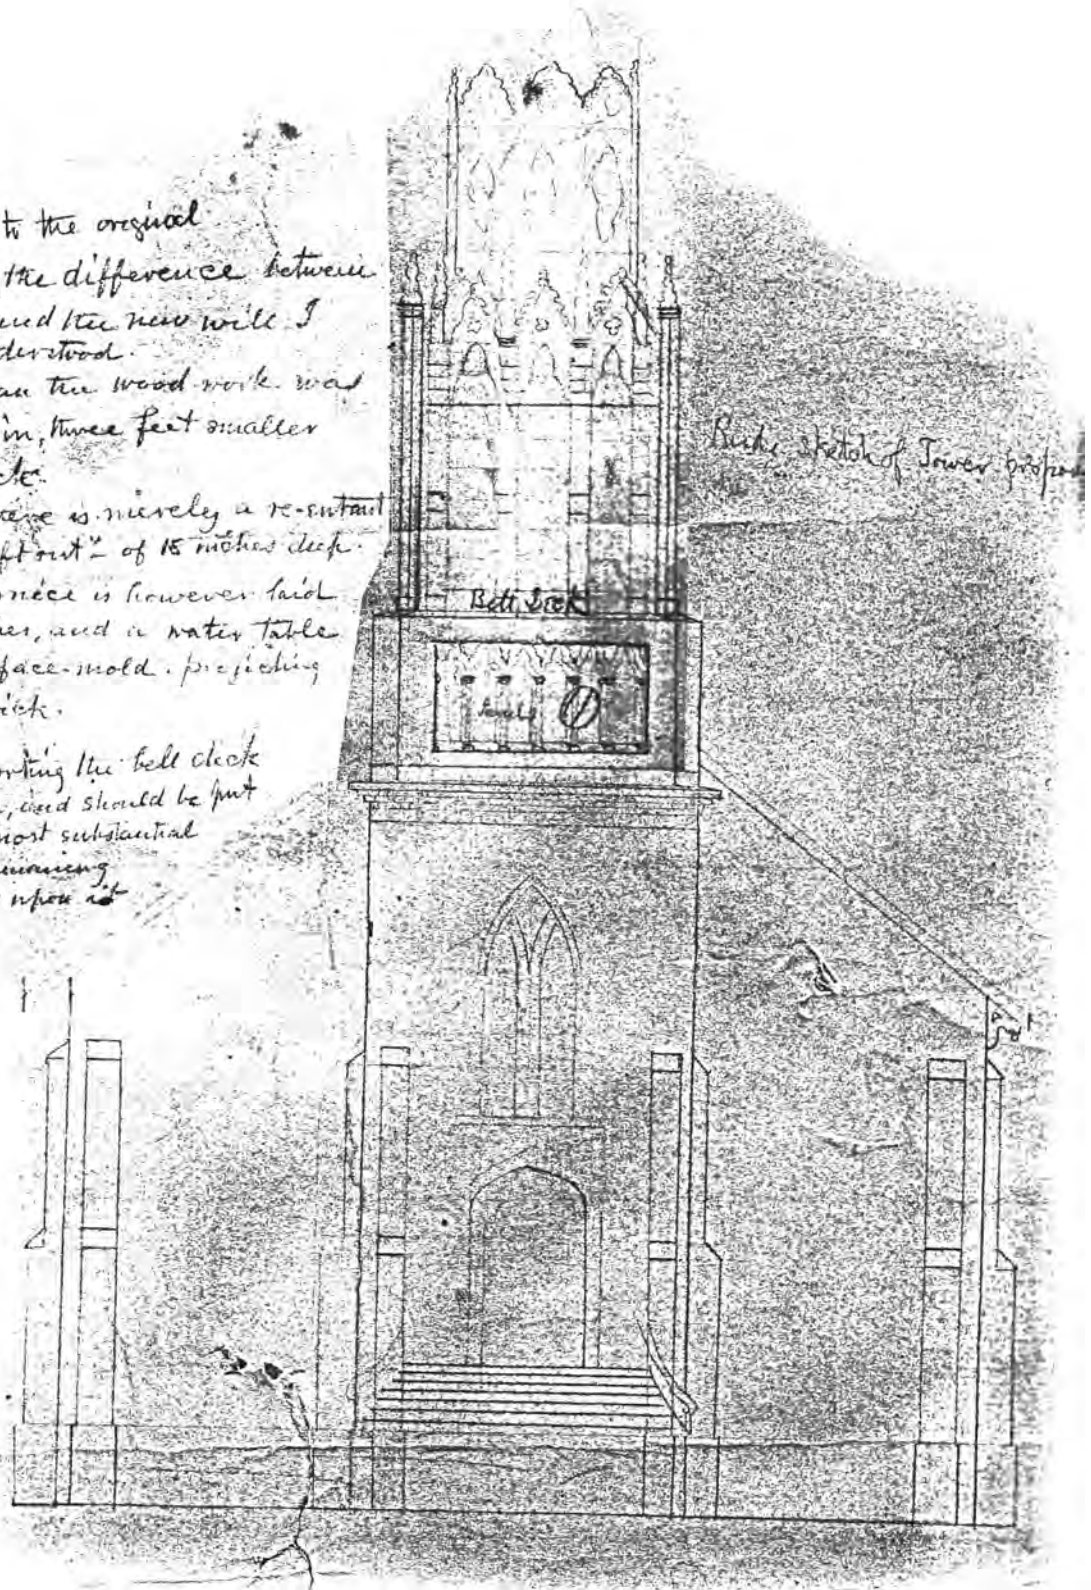 to the original
the difference between
and the new will I
derstood.
an the wood-work was
in, three feet smaller
ck.
ere is merely a re-entrant
of 18 inches deep.
nice is however laid
es, and a water table
face-mold. projecting
ick.
orting the bell deck
, and should be put
most substantial
upon it
Rude Sketch of Tower propos
Bell Deck